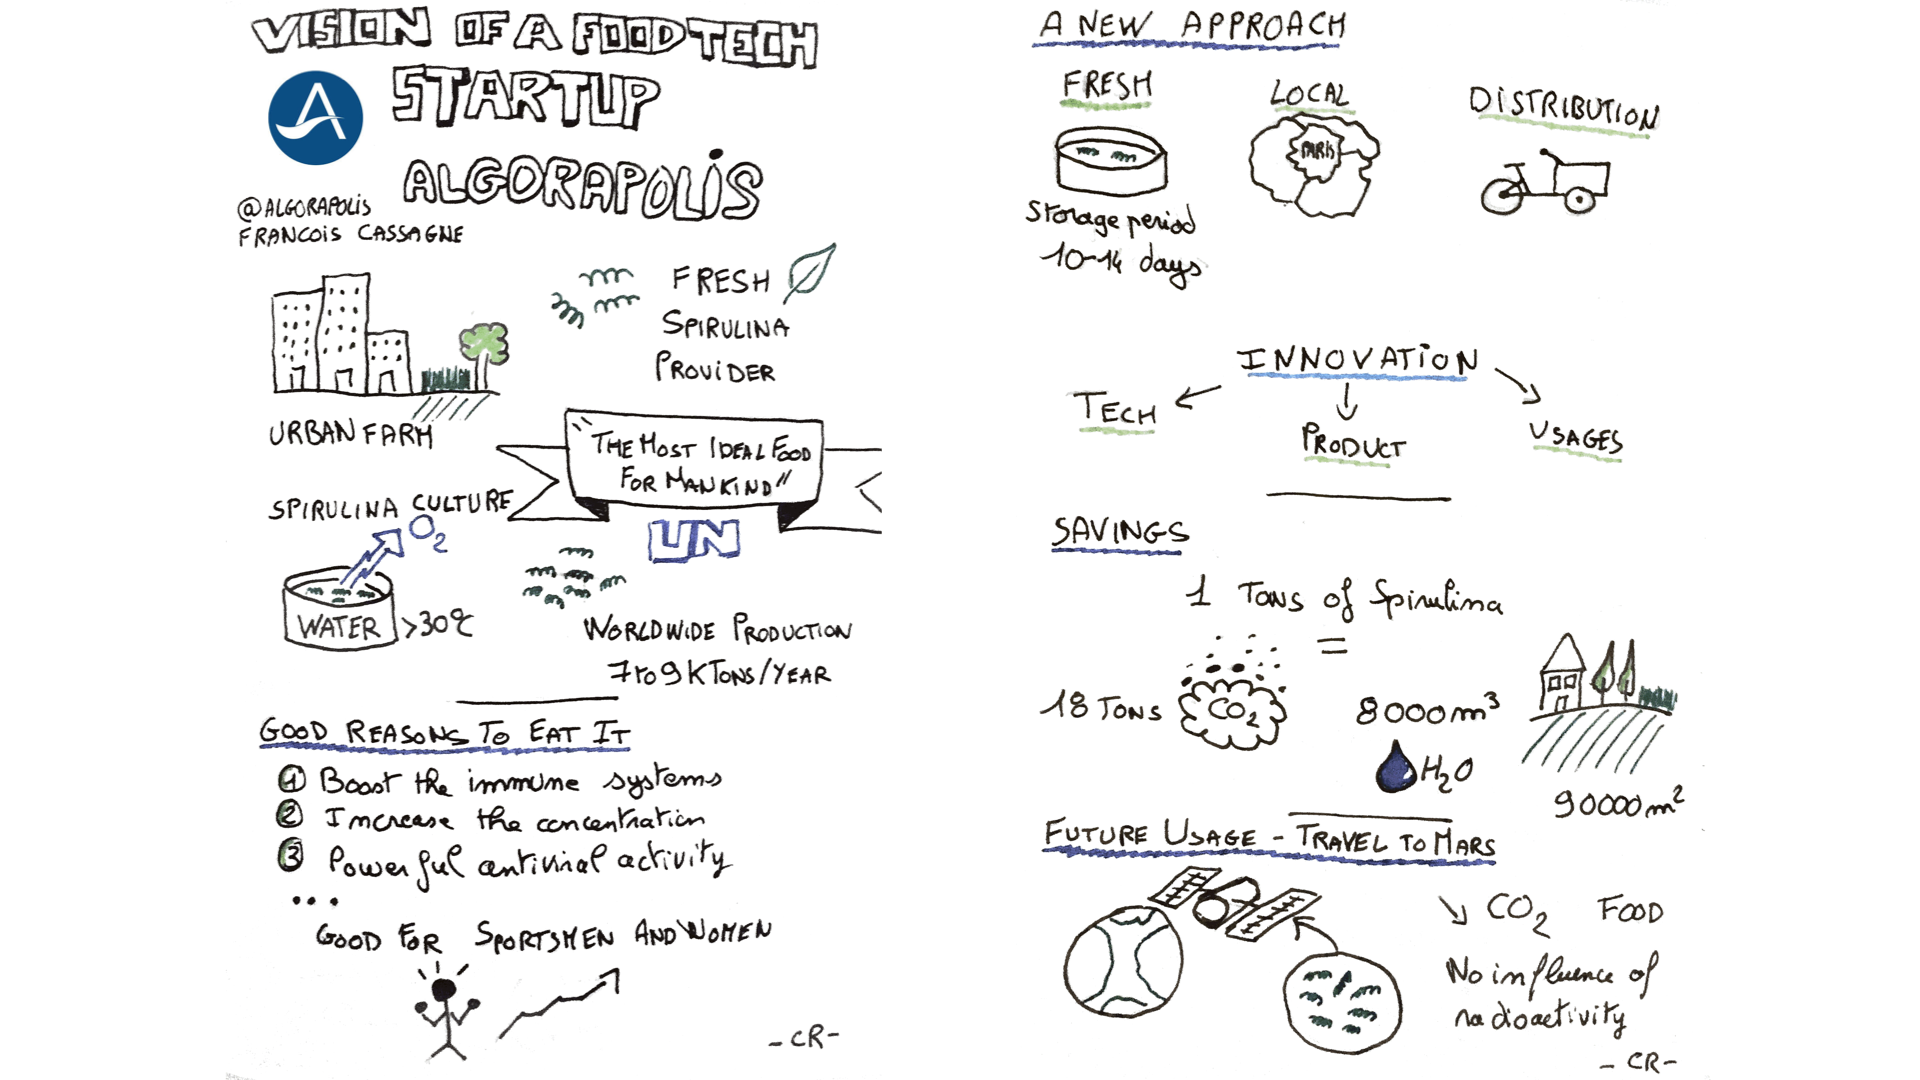 VISION OF A FOODTECH
STARTUP
ALGORAPOLIS
A
@ALGORAPOLIS
FRANCOIS CASSAGNE
FRESH
SPIRULINA
PROVIDER
URBAN FARM
"THE MOST IDEAL FOOD
FOR MANKIND"
UN
SPIRULINA CULTURE
O2
WATER >30°C
WORLDWIDE PRODUCTION
7 to 9 K TONS/YEAR
GOOD REASONS TO EAT IT
1 Boost the immune systems
2 Increase the concentration
3 Powerful antiviral activity
...
GOOD FOR SPORTSMEN AND WOMEN
-CR-
A NEW APPROACH
FRESH
LOCAL
DISTRIBUTION
PARIS
Storage period
10-14 days
INNOVATION
TECH
PRODUCT
USAGES
SAVINGS
1 TONS of Spirulina
=
18 TONS
CO2
8000m³
H2O
90000m²
FUTURE USAGE - TRAVEL TO MARS
↘ CO2 FOOD
No influence of
radioactivity
-CR-